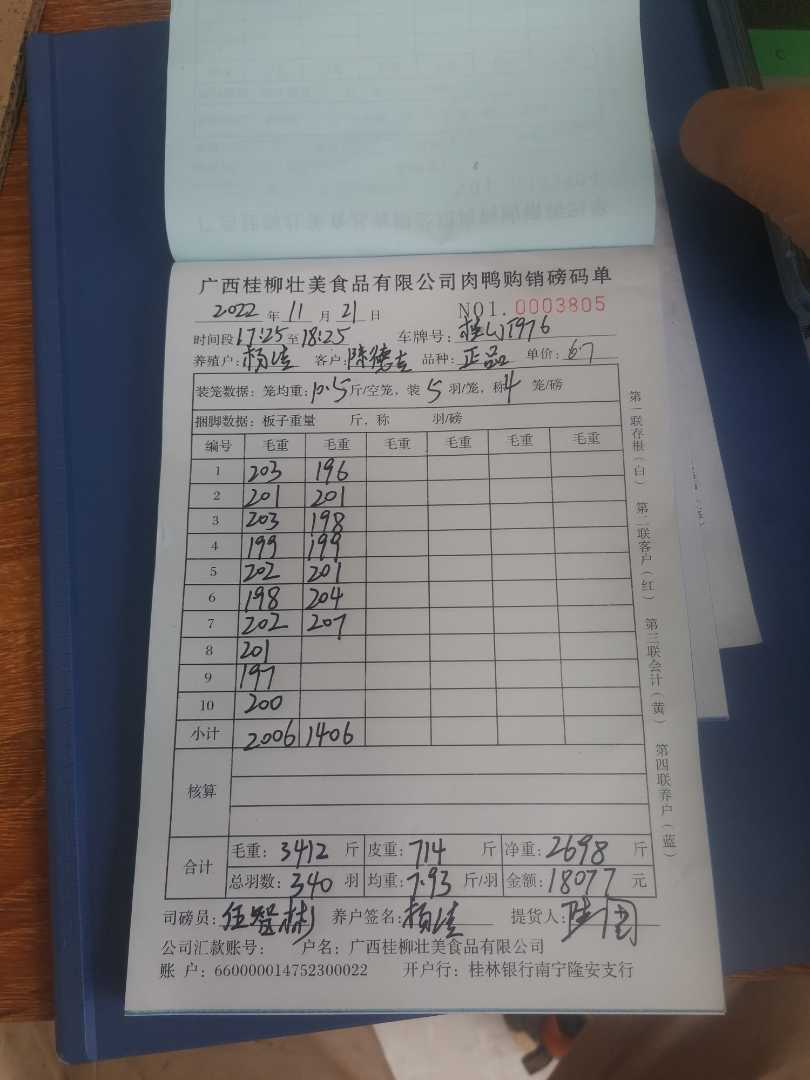 广西桂柳壮美食品有限公司肉鸭购销磅码单
2022 年 11 月 21 日 NO1. 0003805
时间段 17:25 至 18:25 车牌号: T976
养殖户: 杨 客户: 陈德 品种: 正品 单价: 6.7
装笼数据: 笼均重: 10.5 斤/空笼, 装 5 羽/笼, 称 4 笼/磅
捆脚数据: 板子重量 斤, 称 羽/磅
编号 毛重 毛重 毛重 毛重 毛重 毛重
1 203 196
2 201 201
3 203 198
4 199 199
5 202 201
6 198 204
7 202 207
8 201
9 197
10 200
小计 2006 1406
核算
合计
毛重: 3412 斤 皮重: 714 斤 净重: 2698 斤
总羽数: 340 羽 均重: 7.93 斤/羽 金额: 18077 元
司磅员: 任智彬 养户签名: 杨 提货人:
公司汇款账号: 户名: 广西桂柳壮美食品有限公司
账 户: 660000014752300022 开户行: 桂林银行南宁隆安支行
第一联存根(白) 第二联客户(红) 第三联会计(黄) 第四联养户(蓝)